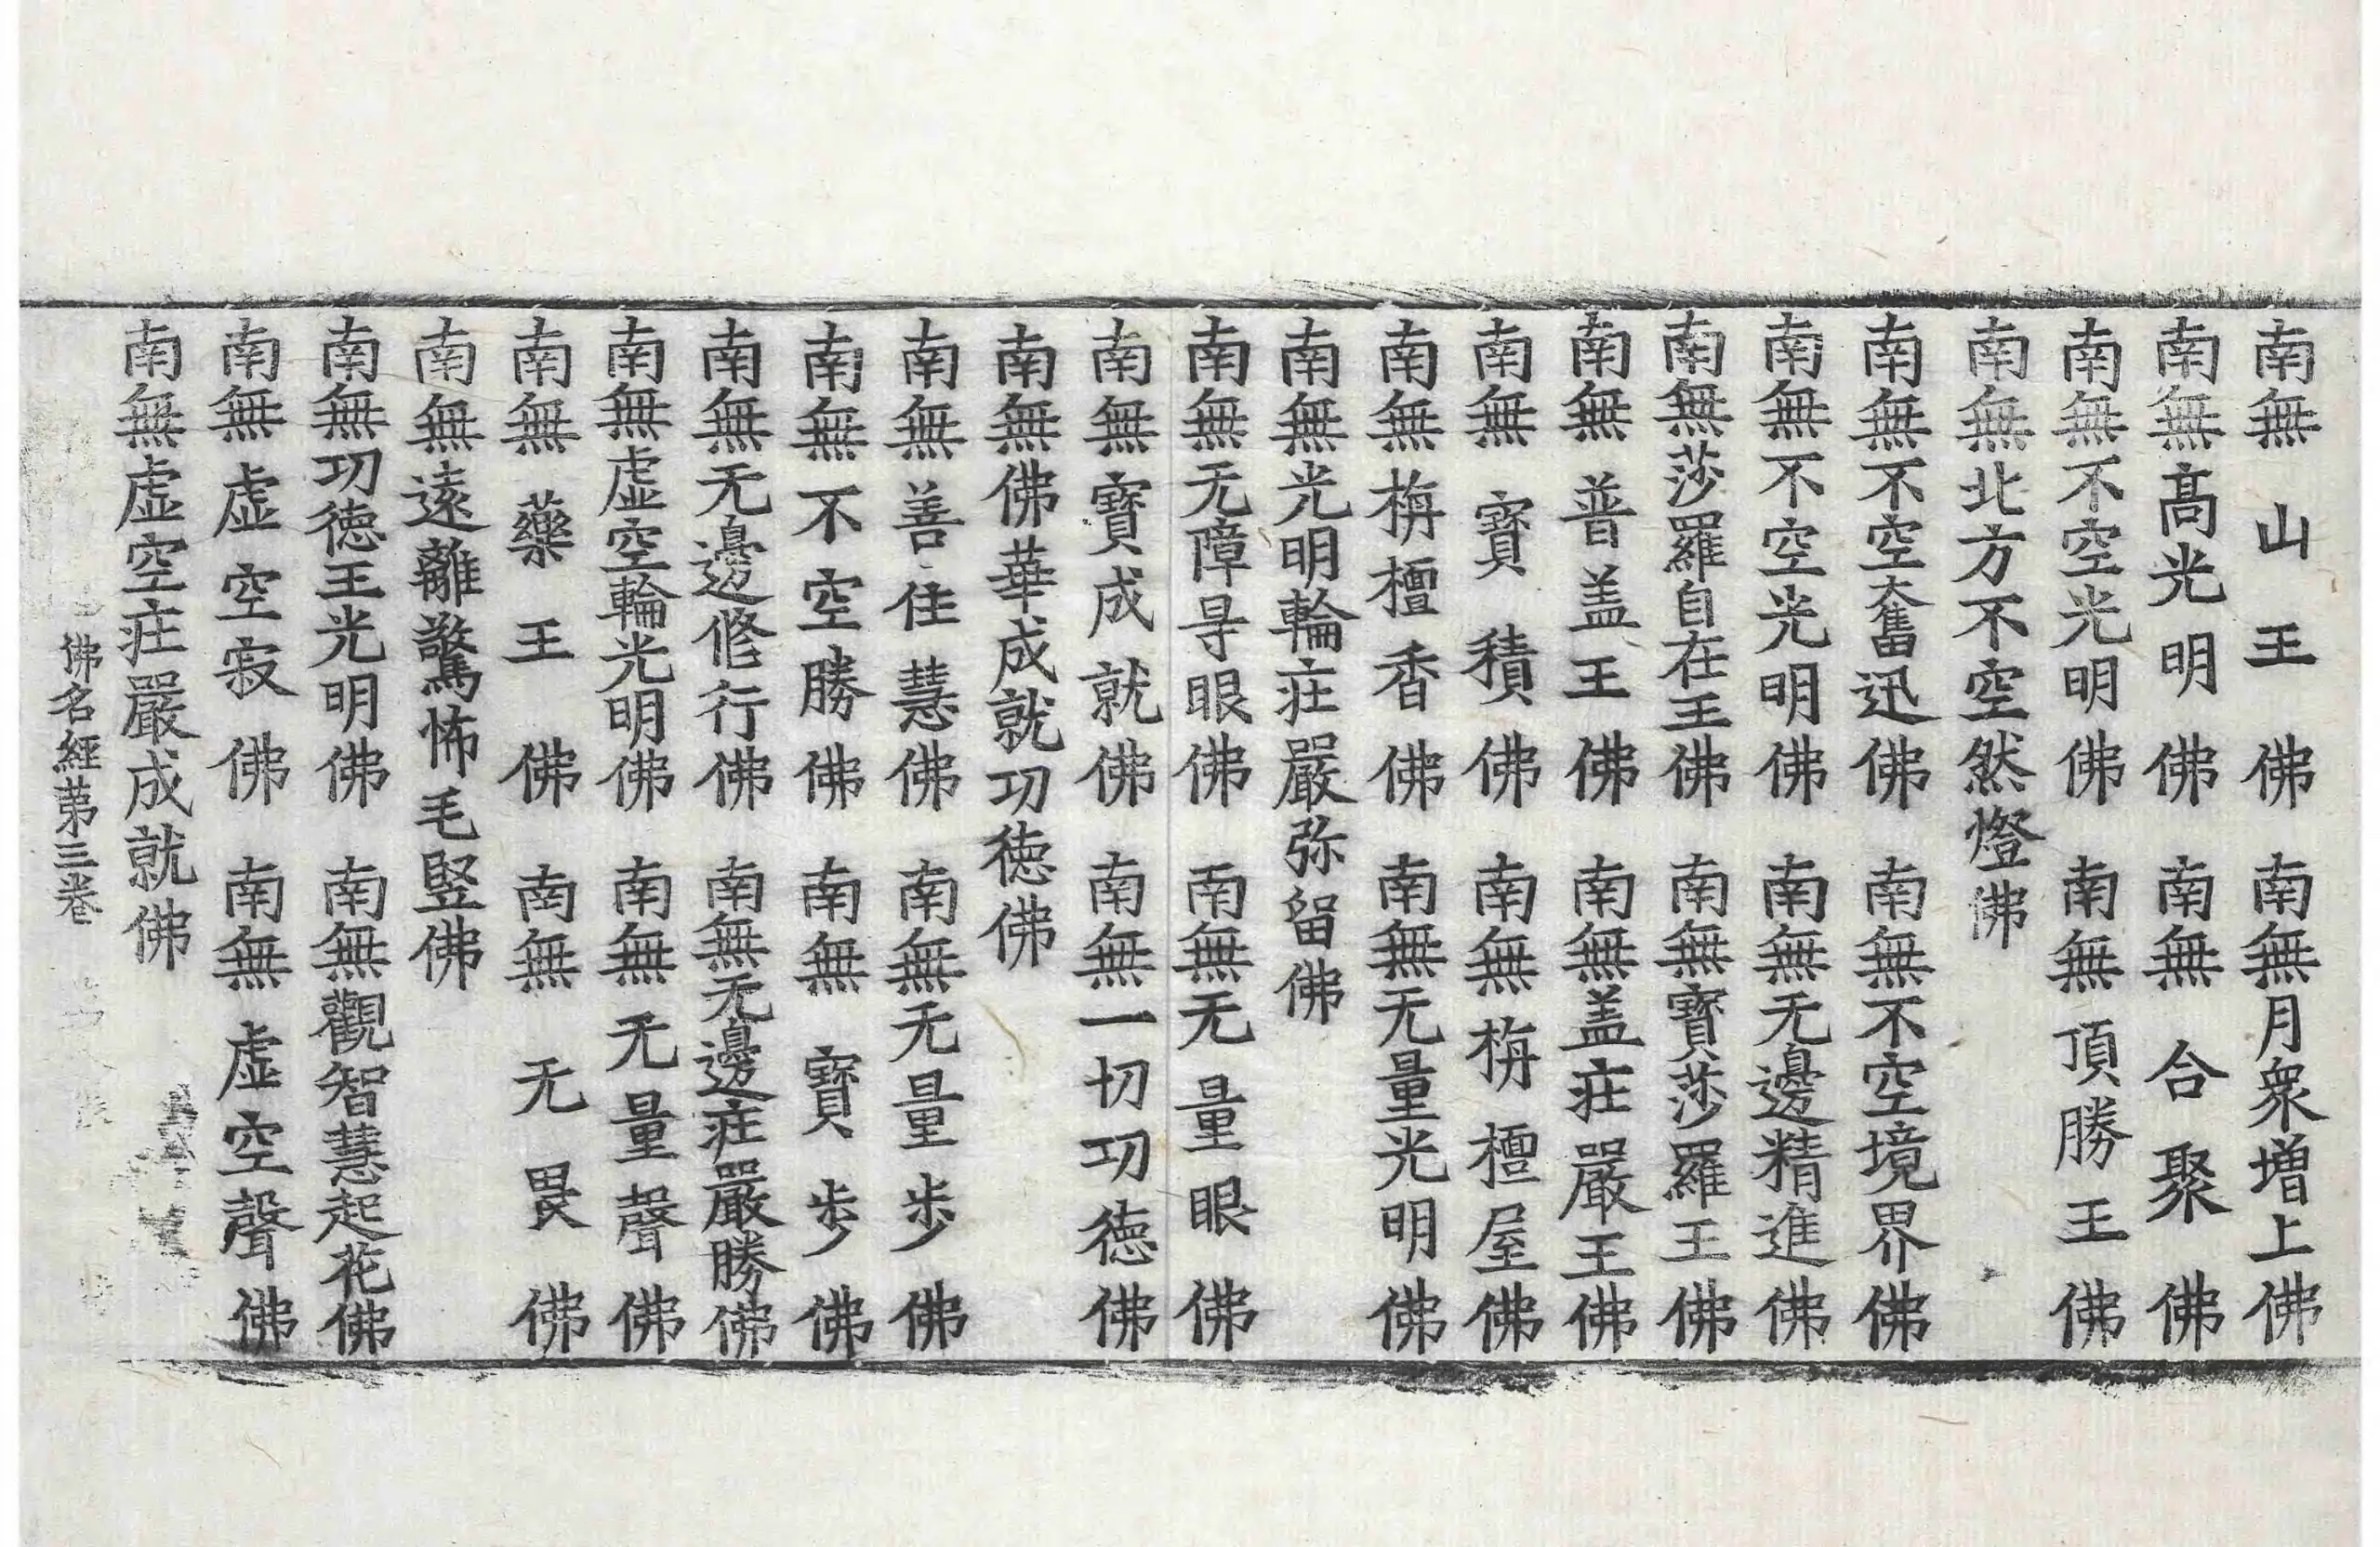 南無山王佛　南無月衆増上佛
南無髙光明佛　南無合聚佛
南無不空光明佛　南無頂勝王佛
南無北方不空然燈佛
南無不空奮迅佛　南無不空境界佛
南無不空光明佛　南無无邊精進佛
南無莎羅自在王佛　南無寶莎羅王佛
南無普盖王佛　南無盖荘嚴王佛
南無寶積佛　南無栴檀屋佛
南無栴檀香佛　南無无量光明佛
南無光明輪荘嚴弥留佛
南無无障㝵眼佛　南無无量眼佛
南無寶成就佛　南無一切功德佛
南無佛華成就功德佛
南無善住慧佛　南無无量步佛
南無不空勝佛　南無寶步佛
南無无邊修行佛　南無无邊荘嚴勝佛
南無虚空輪光明佛　南無无量聲佛
南無藥王佛　南無无畏佛
南無遠離驚怖毛竪佛
南無功德王光明佛　南無觀智慧起花佛
南無虚空寂佛　南無虚空聲佛
南無虚空荘嚴成就佛
佛名經第三卷